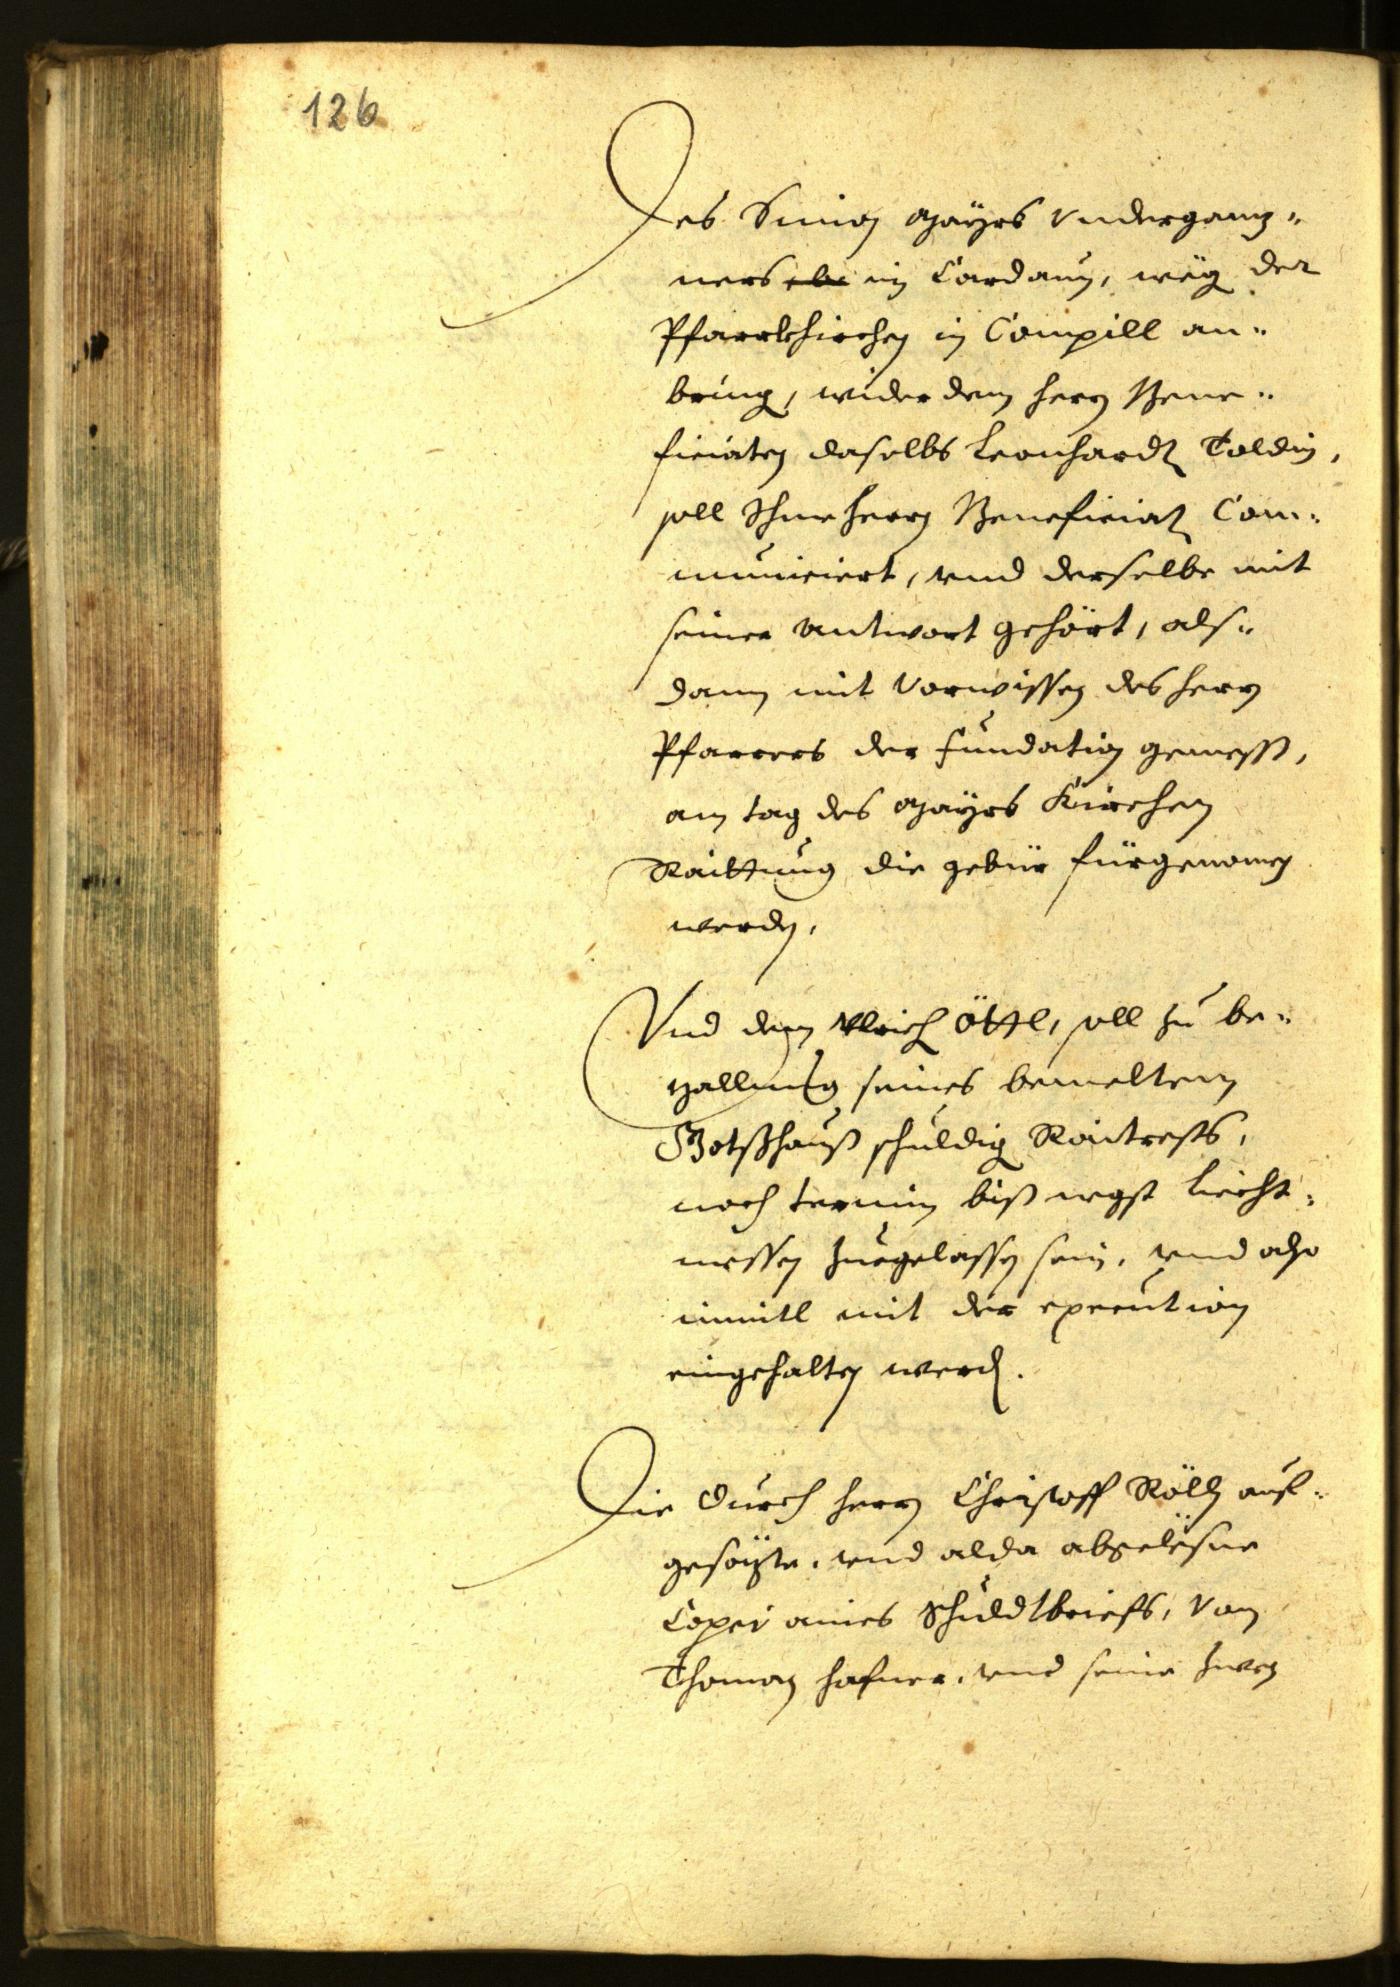 126
Des Simon Mayrs Underganz„
ners in Cardaun, weg der
Pfarrkhirchen in Campill an„
bring, wider dem herrn Bene„
ficiaten daselbs Leonhardt Toldin,
soll Ihme herrn Beneficiat Com„
municiert, vnd derselbe mit
seiner antwort gehört, als„
dann mit Vorwissen des herrn
Pfarrers der fundation gemess,
am tag des Mayrs Kirchen
Raittung die gebür fürgenomen
werden,
Vnd dem Vlrich Öttl, soll zu be„
zallung seines bemeltem
Gotßhauß schuldig Raitrests,
noch termin biß negst Liecht„
messen zuegelassen sein, vnd also
inmitl mit der execution
eingehalten werd.
Die durch herrn Christoff Röll auf„
gesezte, vnd alda abgelesne
Copei aines Schuldtbriefs, von
Thoman hafner, vnd seine zwen